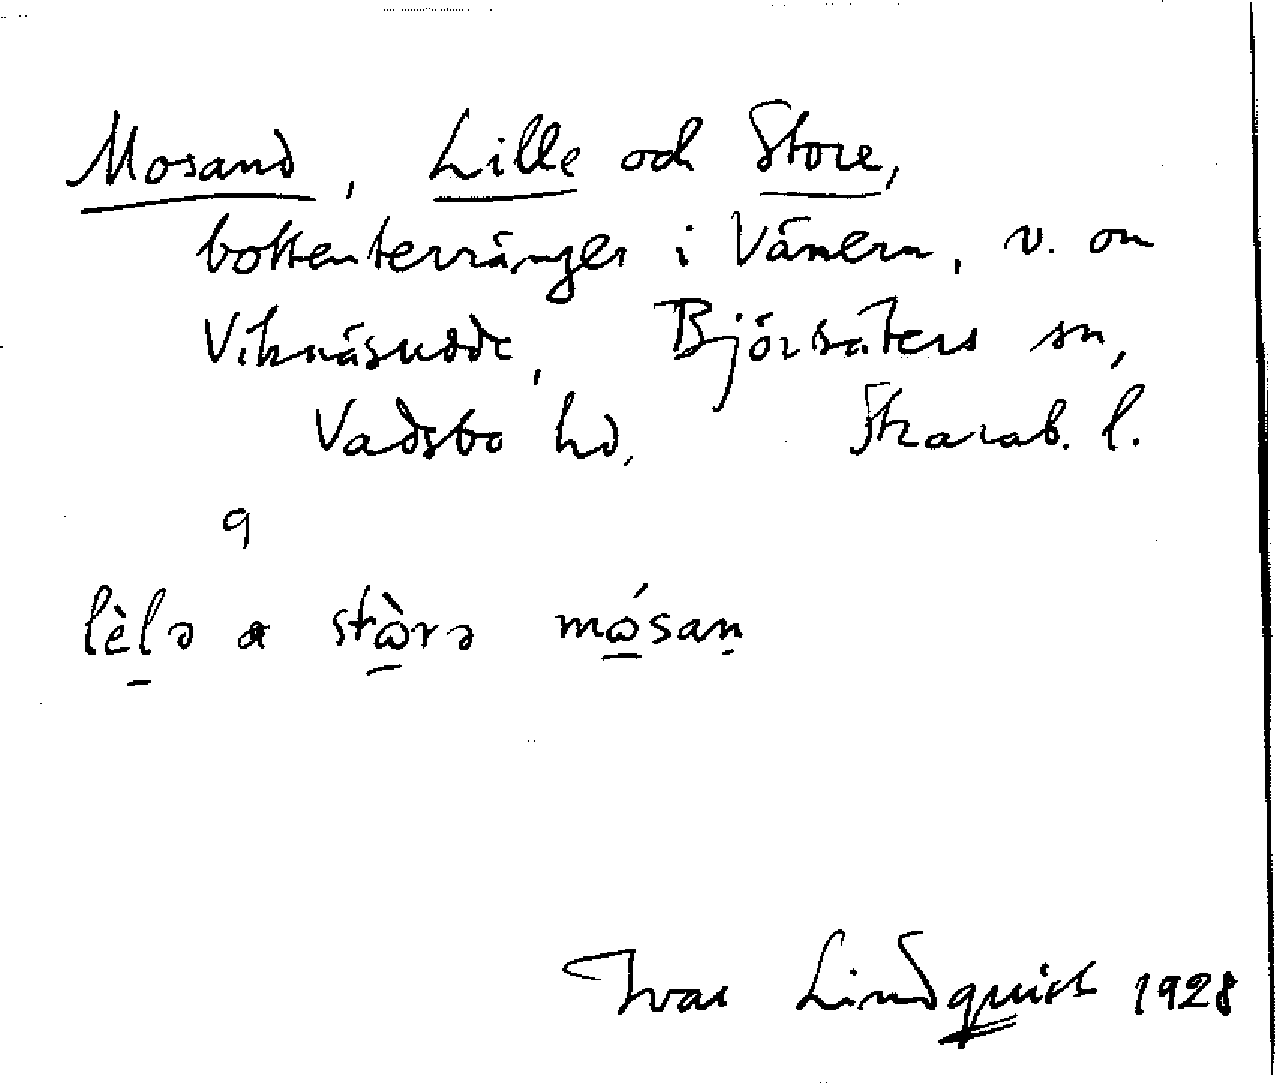 Mosand, Lille och Store,
bottenterränger i Vänern, v. om
Viknäsudde, Björsäters sn,
Vadsbo hd, Skarab. l.
9
lè̠lə a stɷ̠̀rə mɷ̠́saṇ
Ivar Lindquist 1928